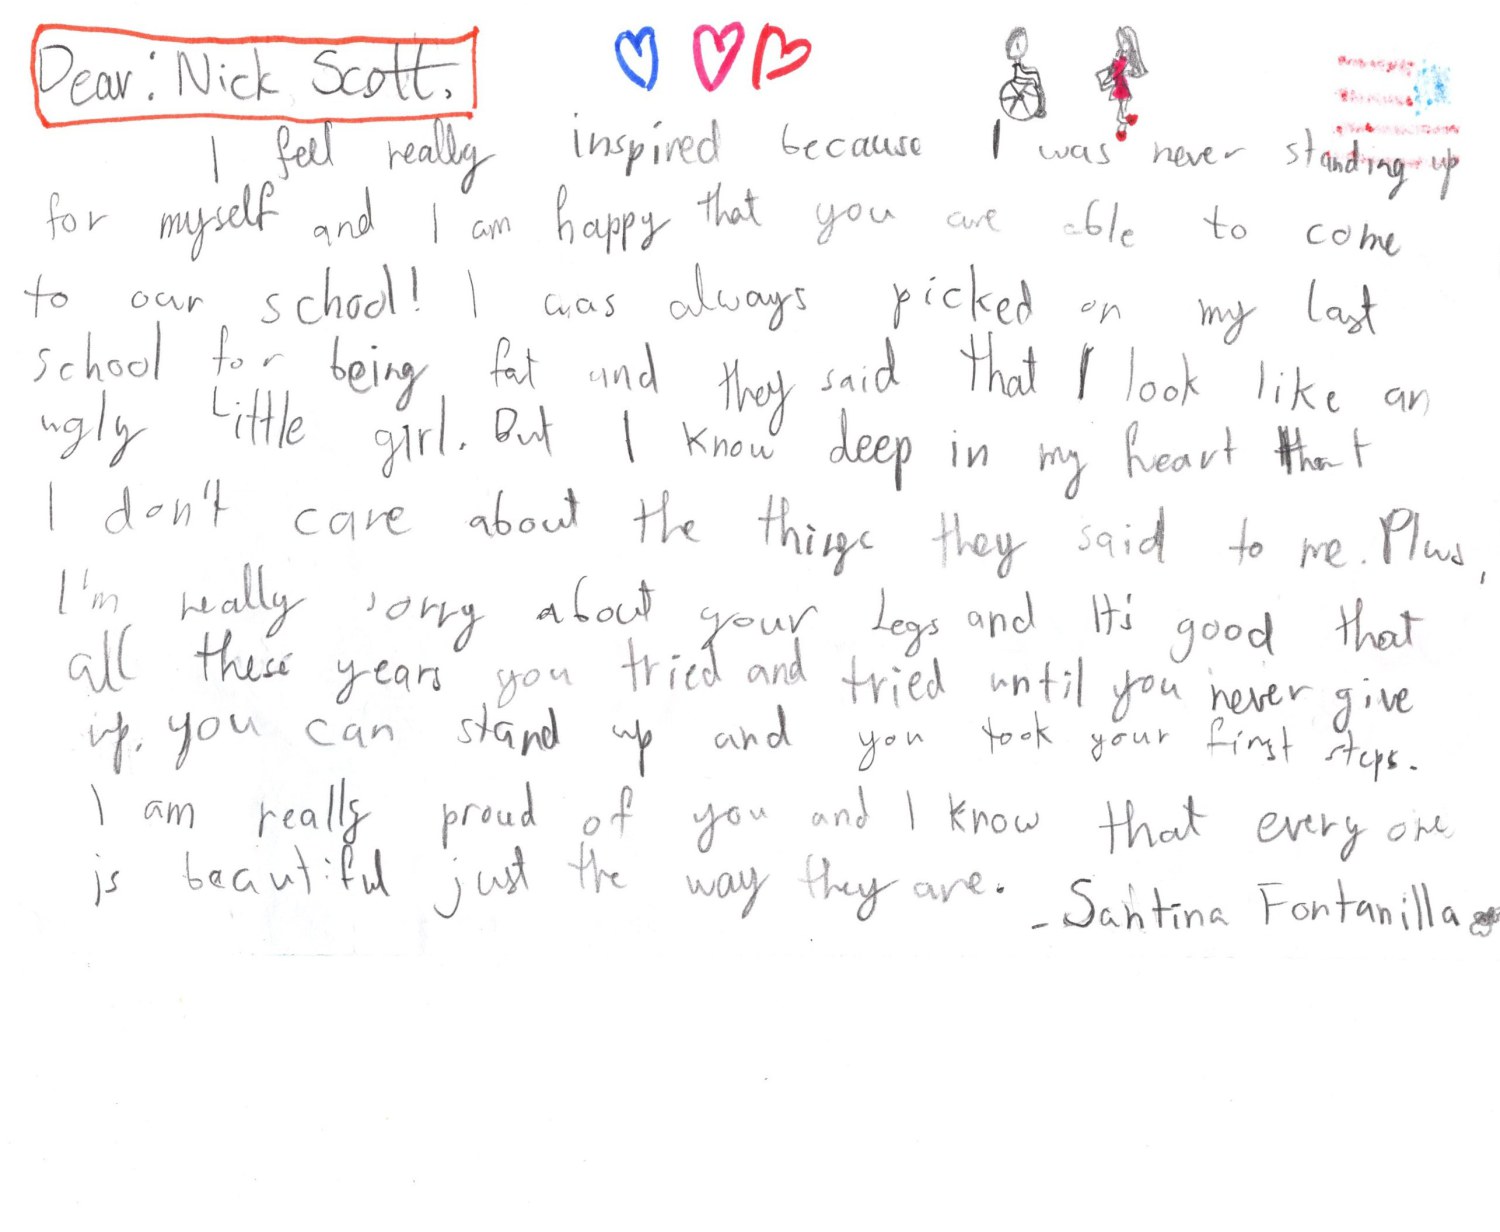 Dear: Nick Scott,
I feel really inspired because I was never standing up
for myself and I am happy that you are able to come
to our school! I was always picked on my last
school for being fat and they said that I look like an
ugly Little girl. But I know deep in my heart that
I don't care about the things they said to me. Plus,
I'm really sorry about your Legs and It's good that
all these years you tried and tried until you never give
up, you can stand up and you took your first steps.
I am really proud of you and I know that every one
is beautiful just the way they are.
- Santina Fontanilla